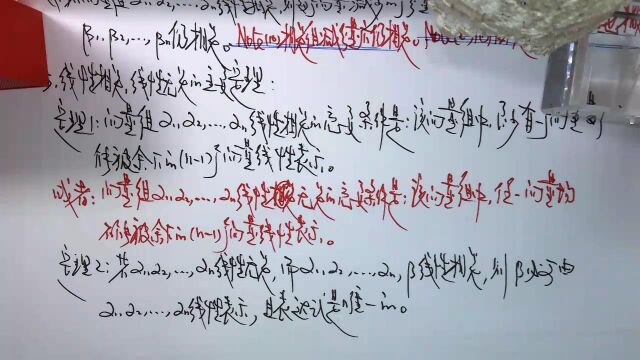 β₁,β₂,…,βₙ仍相关。Note(1)相关组减维后仍相关。
线性相关,线性无关的重要定理:
定理1:向量组α₁,α₂,…αₙ线性相关的充要条件是:该向量组中,至少有一个向量可
能被余下的(n-1)个向量线性表示。
或者:向量组α₁,α₂,…,αₙ线性无关的充要条件是:该向量组中,任一向量均
不能被余下的(n-1)个向量线性表示。
定理2:若α₁,α₂,…,αₙ线性无关,而α₁,α₂,…,αₙ,β线性相关,则β必可由
α₁,α₂,…,αₙ线性表示,且表达式是唯一的。